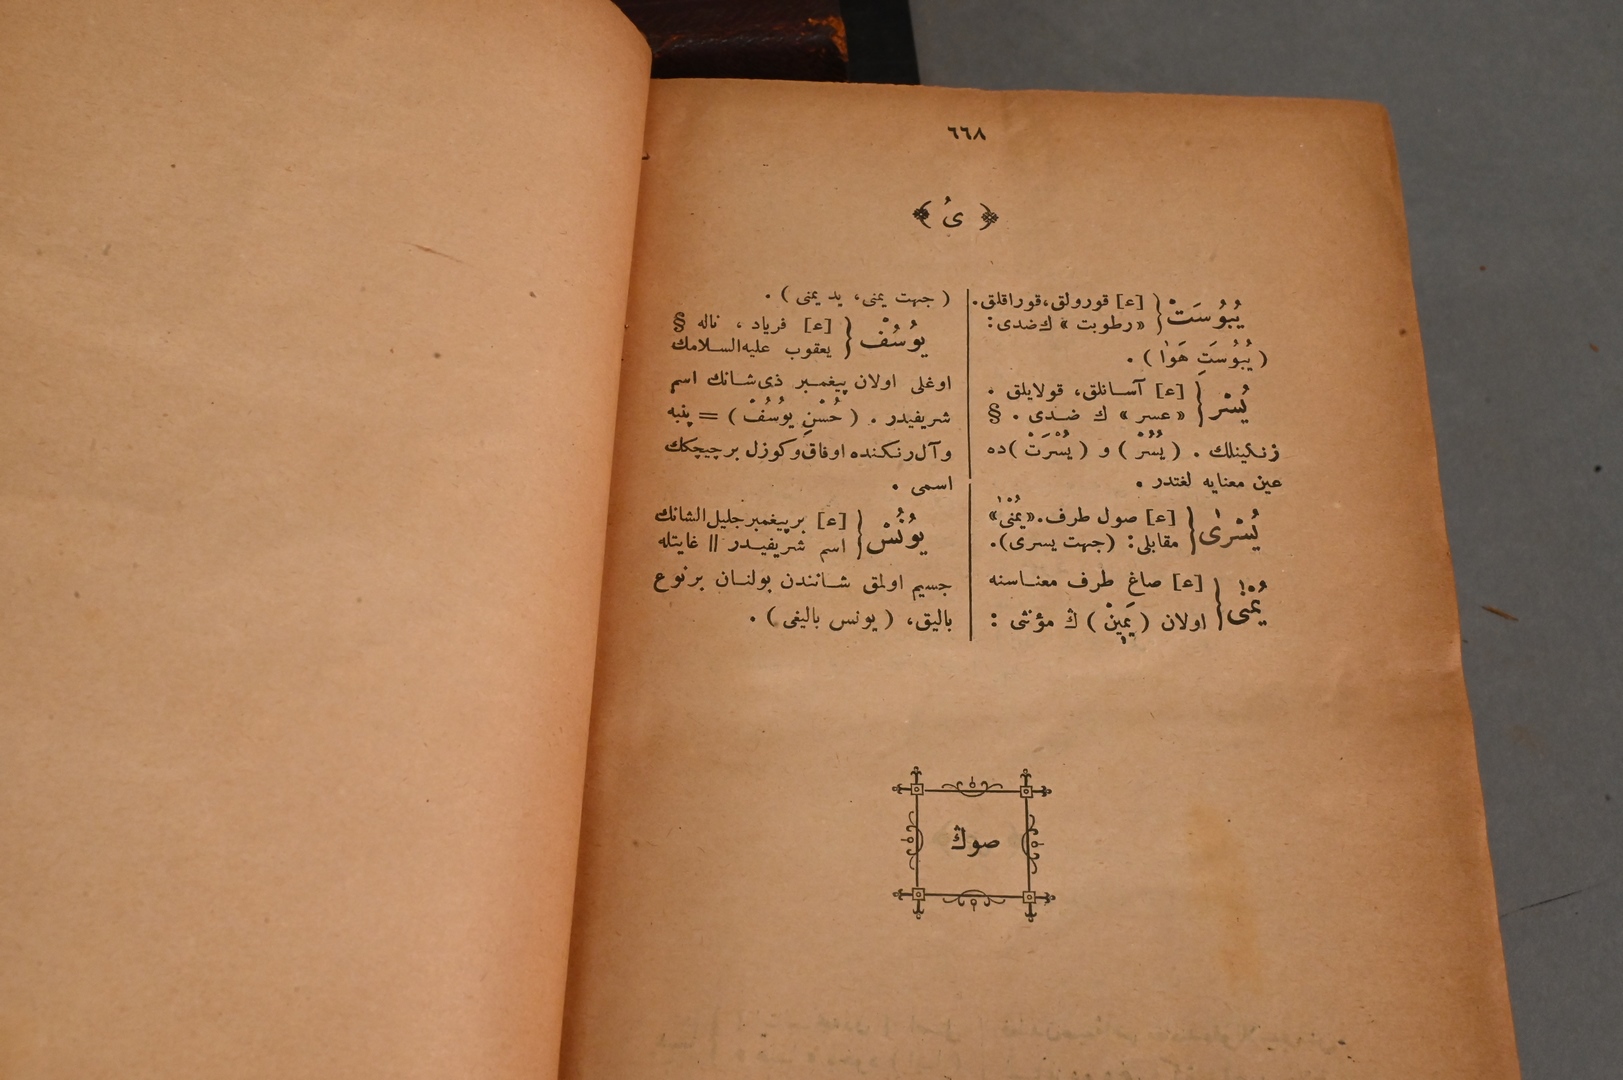 ٦٦٨
﴿ ىُ ﴾
يُبُوُسَتْ { [ع] قورولق، قوراقلق.
«رطوبت» ك ضدى:
( يُبُوُسَتِ هَوٰا ) .
يُسْر { [ع] آسانلق، قولايلق .
«عسر» ك ضدى . §
زنكينلك . ( يُسُرْ ) و ( يُسْرَتْ ) ده
عين معنايه لغتدر .
يُسْرٰى { [ع] صول طرف. «يُمْنٰى»
مقابلى: (جهت يسرى).
يُمْنٰى { [ع] صاغ طرف معناسنه
اولان ( يَمِينْ ) ڭ مؤنثى :
( جهت يمنى، يد يمنى ) .
يوُسُفْ { [ع] فرياد ، ناله §
يعقوب عليه السلامك
اوغلى اولان پيغمبر ذى شانك اسم
شريفيدر . ( حُسْنِ يوُسُفْ ) = پنبه
وآل رنكنده اوفاق وكوزل بر چيچكك
اسمى .
يوُنُسْ { [ع] بر پيغمبر جليل الشانك
اسم شريفيدر || غايتله
جسيم اولمق شانندن بولنان بر نوع
باليق، ( يونس باليغى ) .
صوڭ